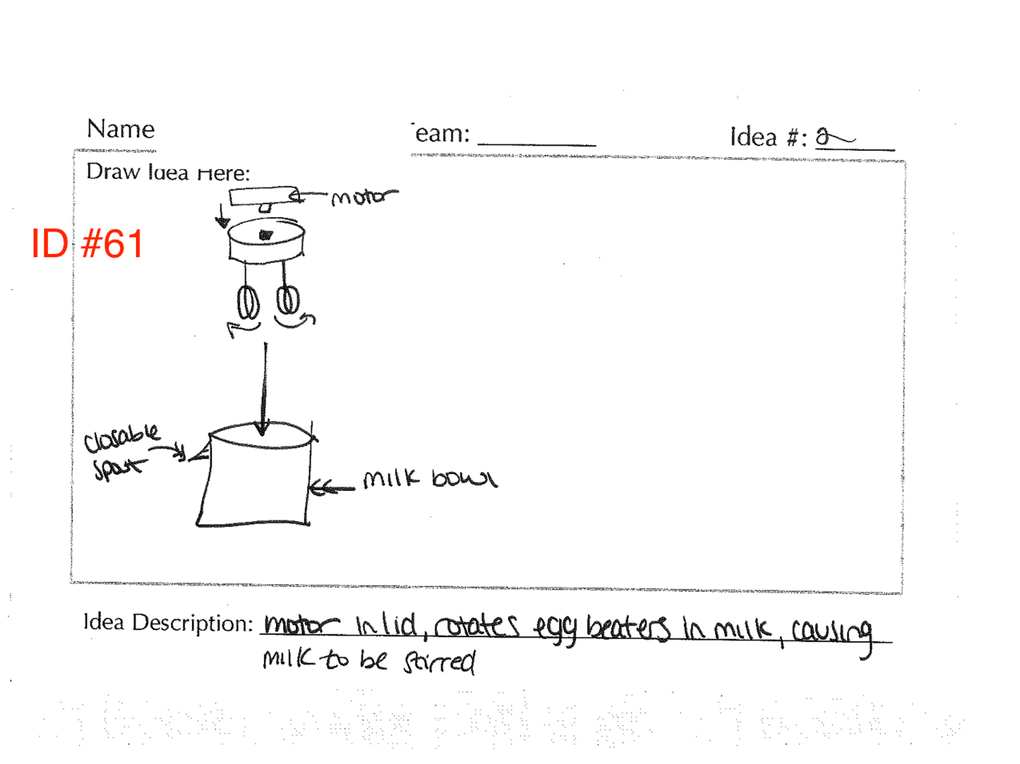 Name
eam:
Idea #: 2
Draw Idea Here:
motor
ID #61
closable
spout
milk bowl
Idea Description: motor in lid, rotates egg beaters in milk, causing
milk to be stirred